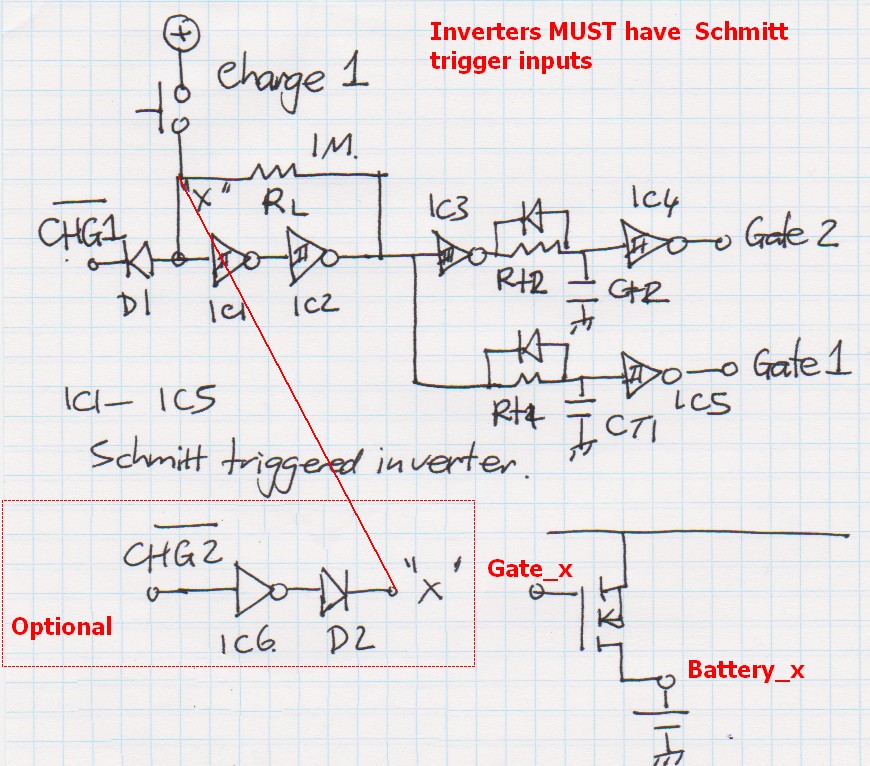 Inverters MUST have Schmitt
trigger inputs
+
Charge 1
1M.
"X"
RL
CHG1
D1
IC1
IC2
IC3
Rt2
Ct2
IC4
Gate 2
Rt1
CT1
IC5
Gate 1
IC1 – IC5
Schmitt triggered inverter.
CHG2
IC6.
D2
"X"
Optional
Gate_x
Battery_x